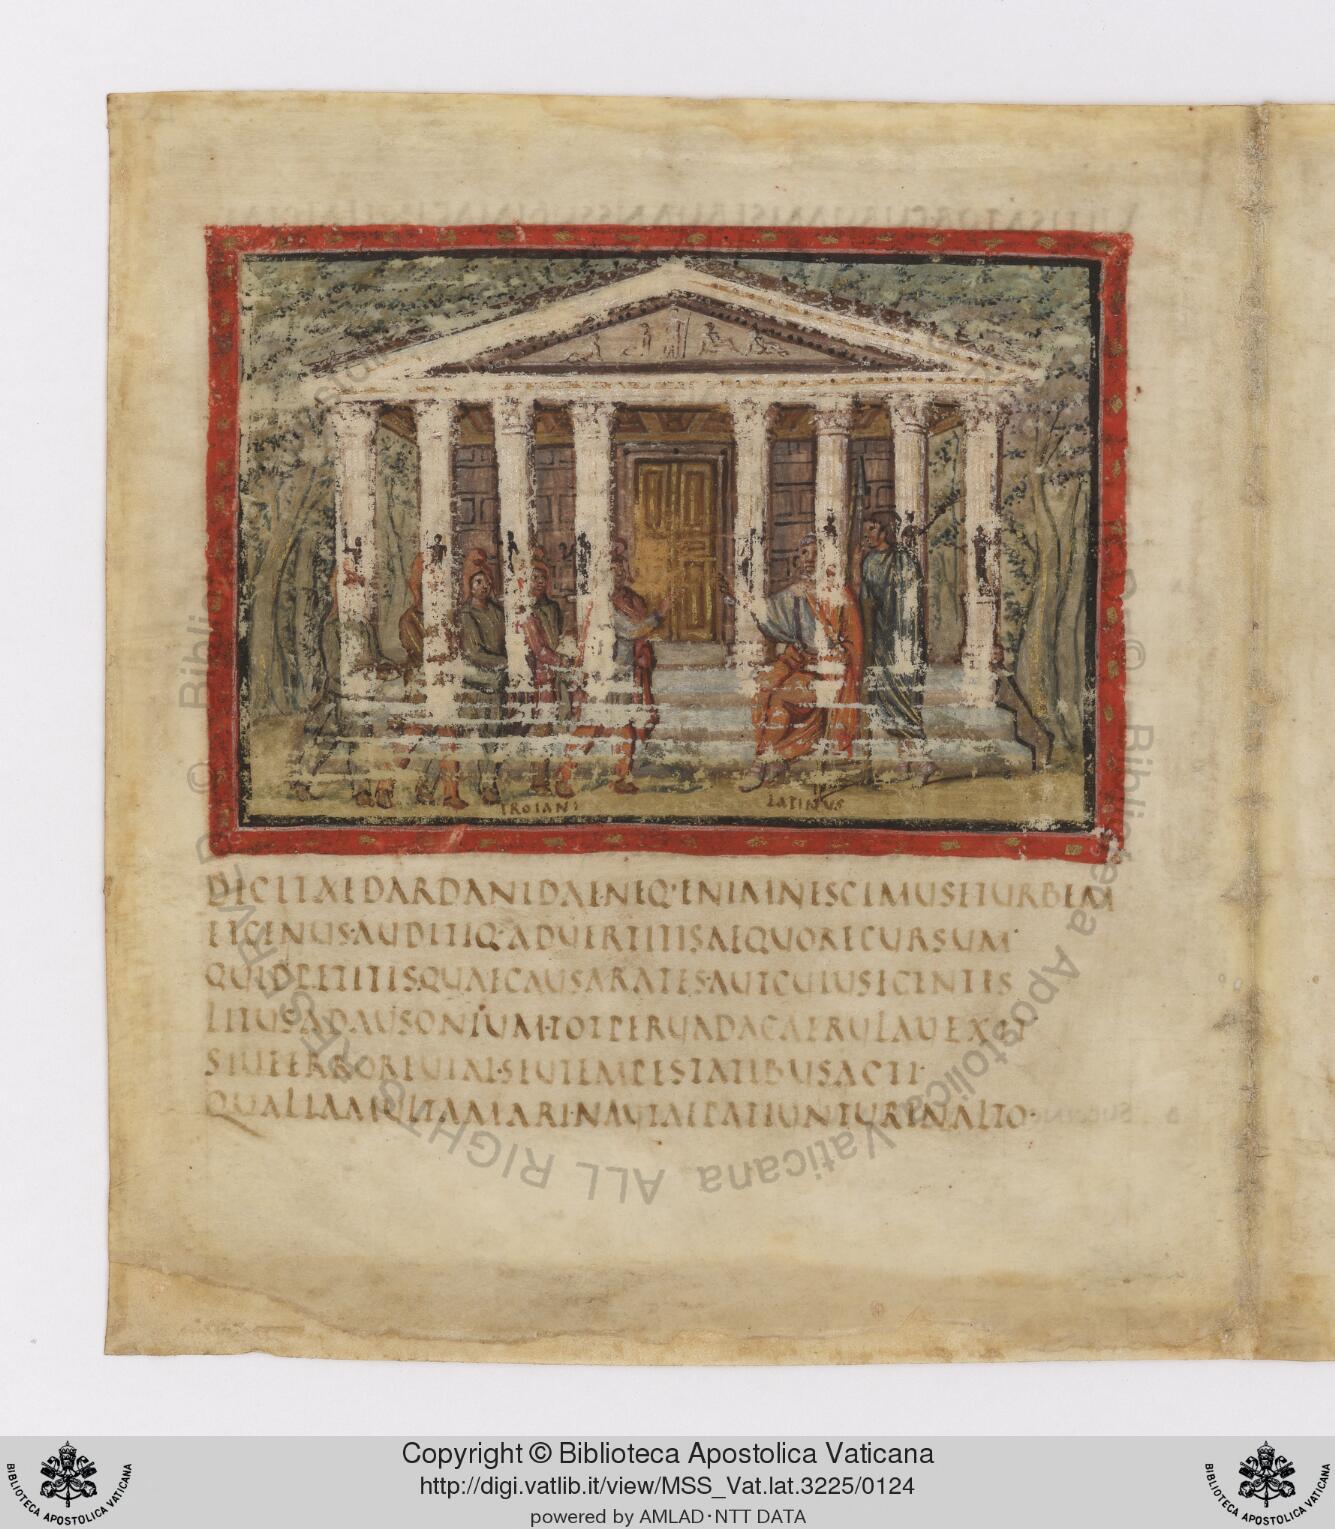 TROIANI
LATINUS
DICITAEDARDANIDAE·NEQ·ENIMNESCIMUSETURBEM
ETGENUS·AUDITIQ·ADUERTITISAEQUORECURSUM·
QUIDPETITISQUAECAUSARATES·AUTCUIUSEGENTES
LITUSADAUSONIUM·TOTPERUADACAERULAUEXIT
SIUEERROREUIAE·SEUTEMPESTATIBUSACTI·
QUALIAMULTAMARI·NAUTAEPATIUNTURINALTO·
© Biblioteca Apostolica Vaticana ALL RIGHTS RESERVED
Copyright © Biblioteca Apostolica Vaticana
http://digi.vatlib.it/view/MSS_Vat.lat.3225/0124
powered by AMLAD·NTT DATA
BIBLIOTECA APOSTOLICA VATICANA
BIBLIOTECA APOSTOLICA VATICANA